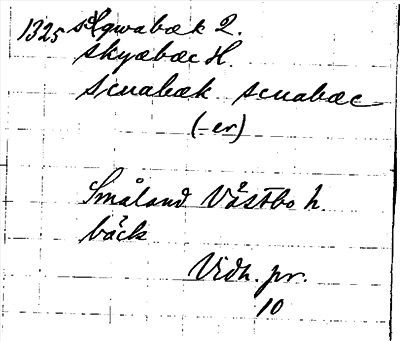 1325 sqwabæk 2.
skyæbæc H.
scuabæk scuabæc
(-er)
Småland Västbo h.
bäck
Vidh. pr.
10